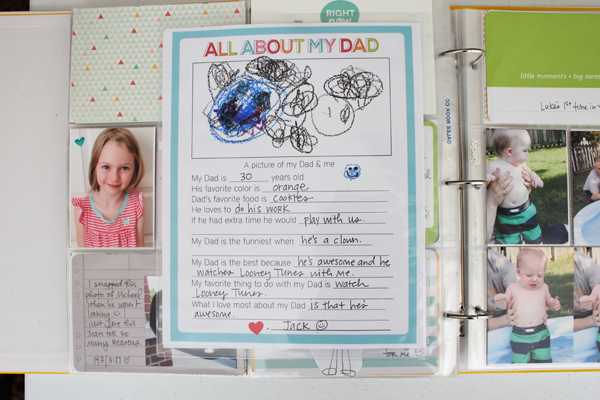 RIGHT
now
ALL ABOUT MY DAD
A picture of my Dad & me
My Dad is 30 years old
His favorite color is orange
Dad's favorite food is cookies
He loves to do his work
If he had extra time he would play with us.
My Dad is the funniest when he's a clown.
My Dad is the best because he's awesome and he
watches Looney Tunes with me.
My favorite thing to do with my Dad is watch
Looney Tunes.
What I love most about my Dad is that he's
awesome.
Jack
I snapped this
photo of Michael
when he wasn't
looking.
Just love this
man for so
many reasons
for me
little moments + big mem
Luke's 1st time in